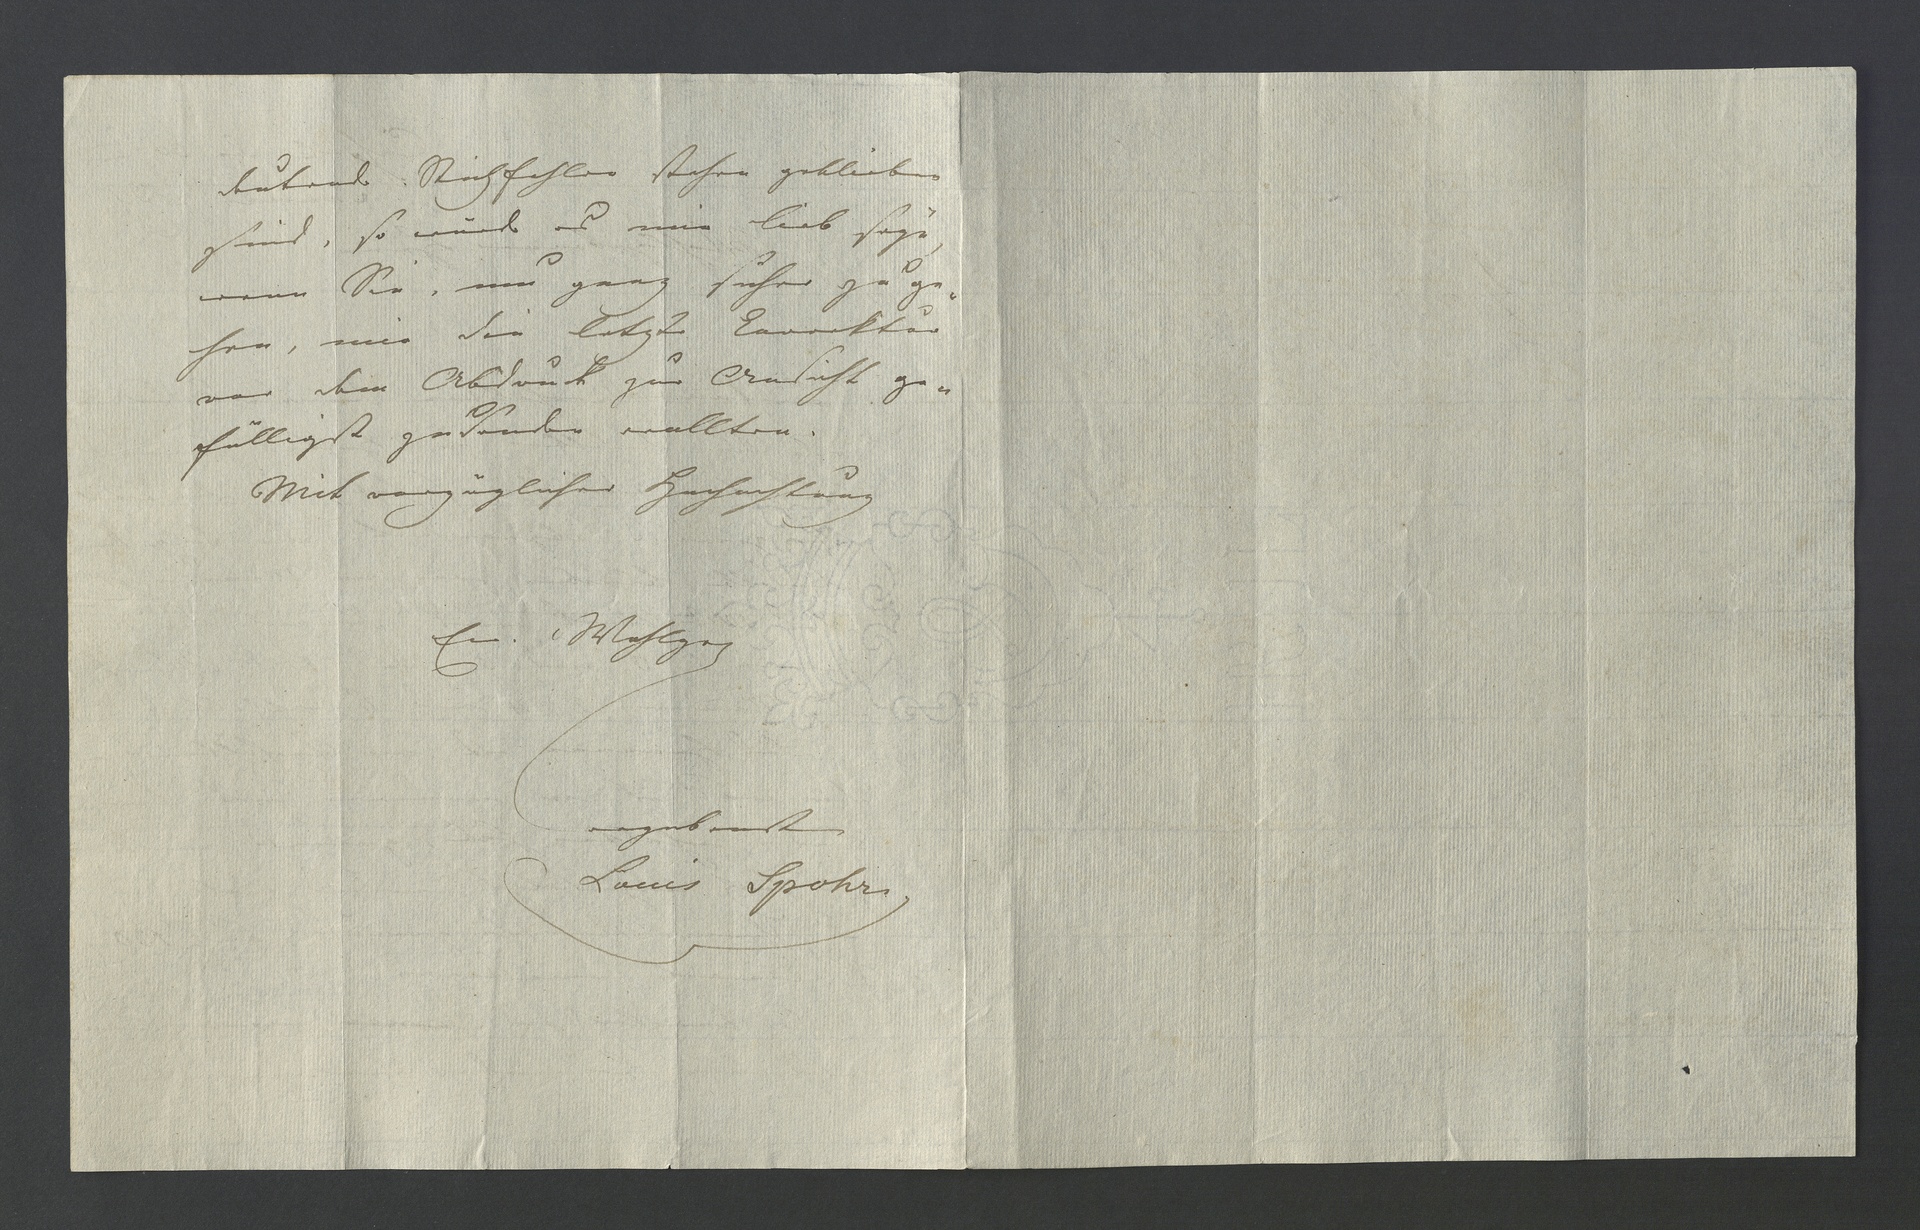 deutende Stichfehler stehen geblieben
sind, so würde es mir lieb seyn,
wenn Sie, um ganz sicher zu ge-
hen, mir die letzte Correktur
vor dem Abdruck zur Ansicht ge-
fälligst zusenden wollten.
Mit vorzüglicher Hochachtung
Ew. Wohlgeb
ergebenster
Louis Spohr.